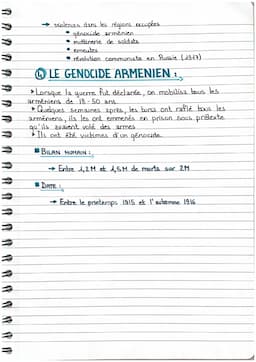 → violences dans les régions occupées
• génocide arménien
• mutinerie de soldats
• émeutes
• révolution communiste en Russie (1917)
④ LE GENOCIDE ARMENIEN :
▸ Lorsque la guerre fut déclarée, on mobilisa tous les
arméniens de 18-50 ans.
▸ Quelques semaines après, les turcs ont raflé tous les
arméniens, ils les ont emmenés en prison sous prétexte
qu'ils avaient volé des armes.
▸ Ils ont été victimes d'un génocide.
■ BILAN HUMAIN :
→ Entre 1,2M et 1,5M de morts sur 2M
■ DATE :
→ Entre le printemps 1915 et l'automne 1916